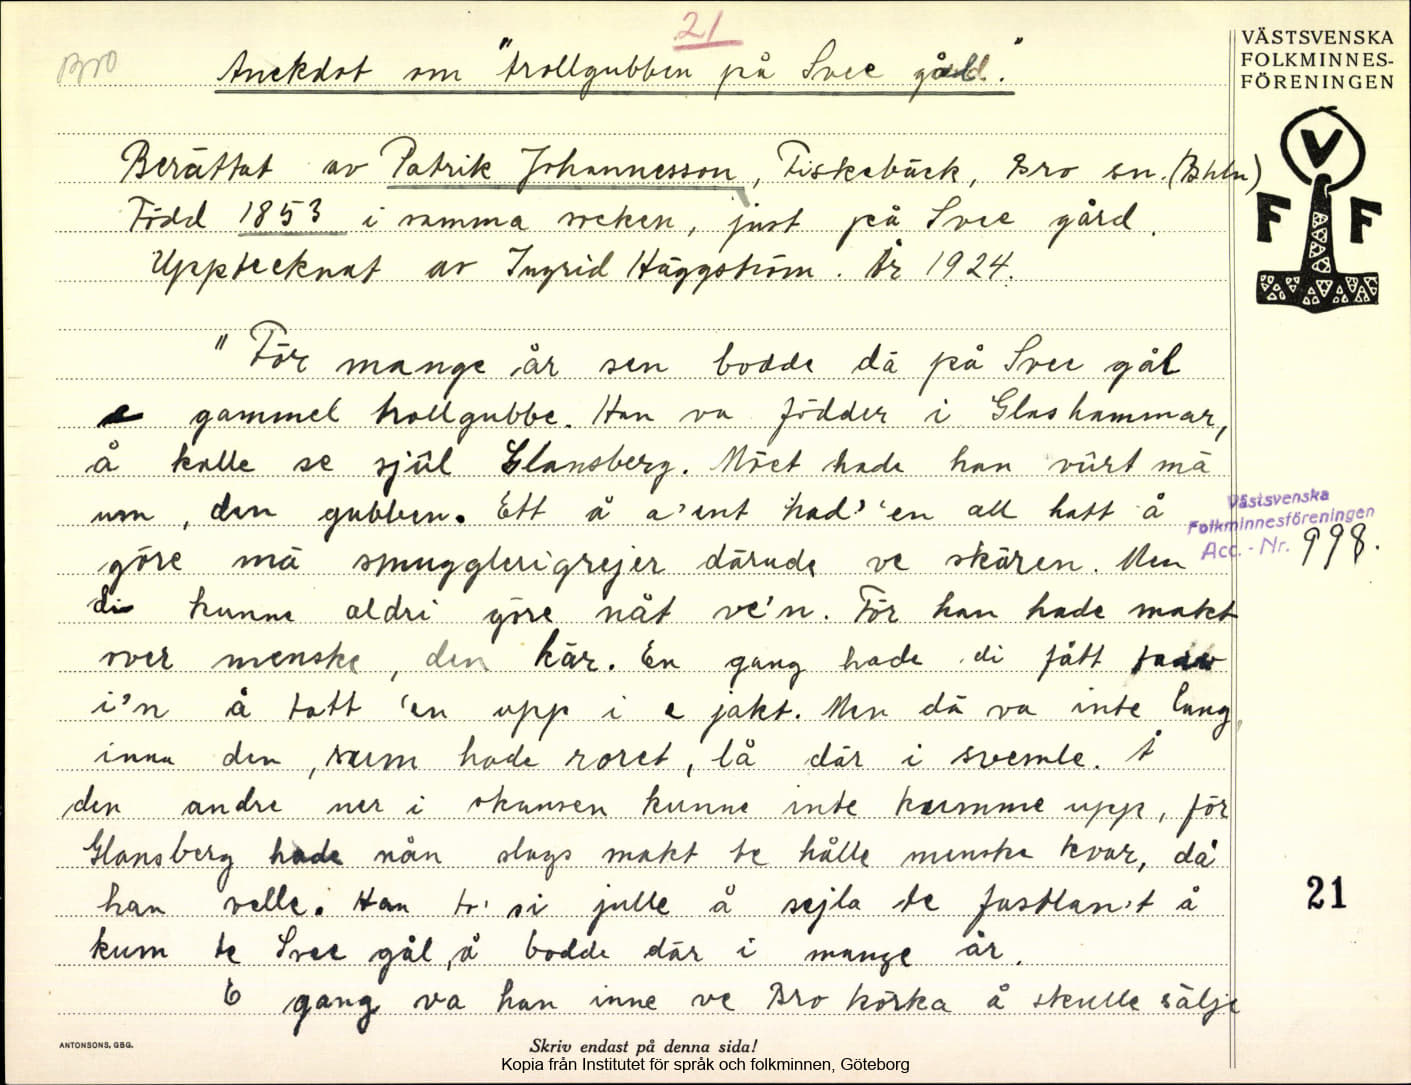 21
Bro
Anekdot om "trollgubben på Svee gård."
VÄSTSVENSKA
FOLKMINNES-
FÖRENINGEN
V
F F
Berättat av Patrik Johannesson, Fiskebäck, Bro sn. (Bhln)
Född 1853 i samma socken, just på Svee gård.
Upptecknat av Ingrid Häggström. År 1924.
"För mange år sen bodde dä på Svee gål
e gammel trollgubbe. Han va födder i Glashammar,
å kalle se själ Glansberg. Möet hade han vürt mä
um, den gubben. Ett å a'ent had' 'en all hatt å
göre mä smugglerigrejer därude ve skären. Men
di kunne aldri göre nåt ve'n. För han hade makt
over menske, den kär. En gang hade di fått
i'n å tatt 'en upp i e jakt. Men dä va inte lang,
inna den, sum hade roret, lå där i svemle. Å
den andre ner i skansen kunne inte kumme upp, för
Glansberg hade nån slags makt te hålle menske kvar, då
han velle. Han to' si julle å sejla te fastlan't å
kum te Svee gål, å bodde där i mange år.
E gang va han inne ve Bro körka å skulle sälje
Västsvenska
Folkminnesföreningen
Acc. - Nr. 998.
21
ANTONSONS, GBG.
Skriv endast på denna sida!
Kopia från Institutet för språk och folkminnen, Göteborg